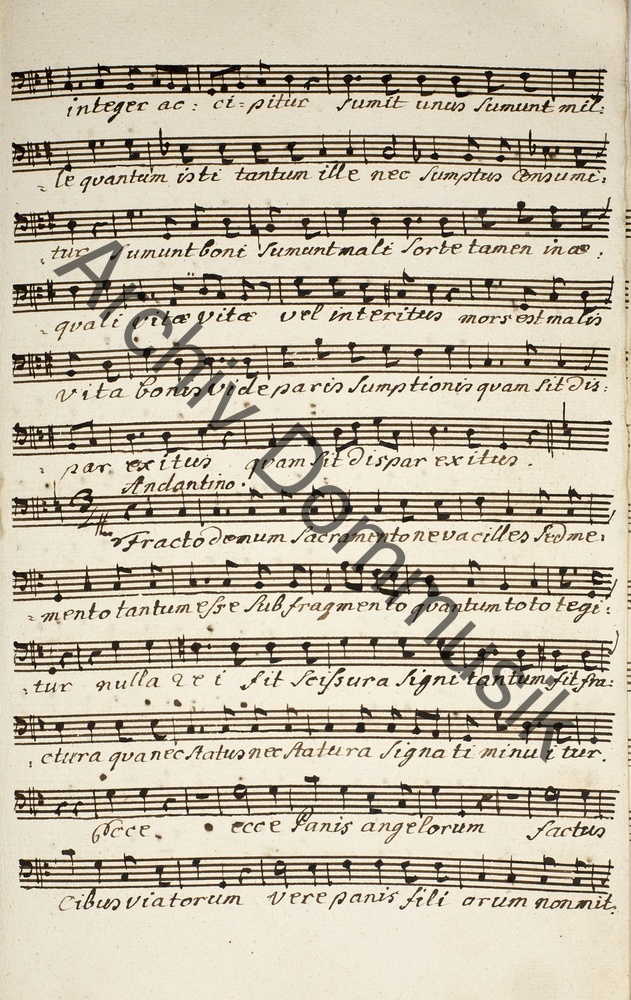 integer ac: ci: pitur sumit unus sumunt mil:
le quantum isti tantum ille nec sumptus Consumi:
tur sumunt boni sumunt mali sorte tamen inæ:
quali vitæ vitæ vel interitus mors est malis
vita bonis vide paris sumptionis quam sit dis:
par exitus quam sit dispar exitus.
Andantino.
Fracto demum Sacramento ne vacilles sed me:
mento tantum esse sub fragmento quantum toto tegi:
tur nulla rei fit scissura signi tantum fit fra:
ctura qua nec status nec statura signati minuitur.
Ecce. ecce Panis angelorum factus
Cibus viatorum vere panis fili orum non mit:
Archiv Dommusik